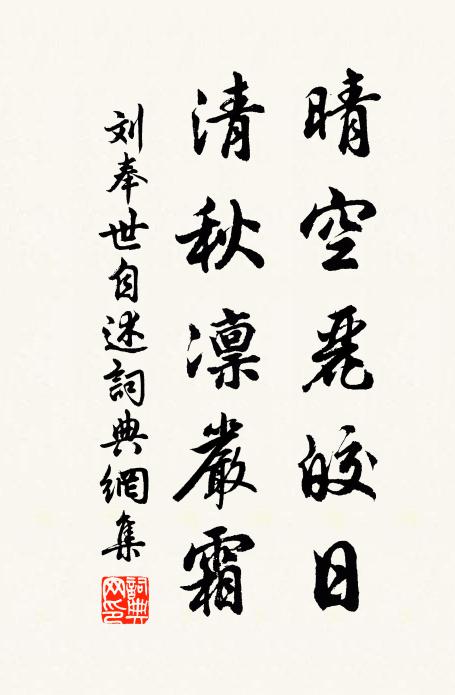 晴空麗皎日
清秋凛嚴霜
刘奉世自述詞典網集
詞典網印